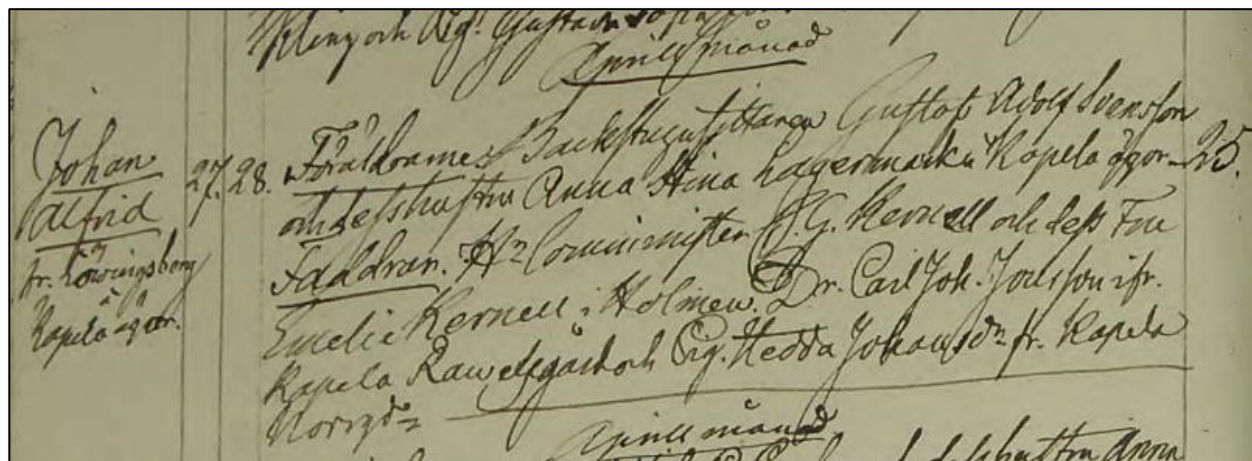 och Pig. Gustava
Aprill månad
Johan
Alfrid
fr. Lövingsborg
å
Kapela ägor.
27. 28.
Föräldrarne: Backstugusittaren Gustaf Adolf Svensson
och dess hustru Anna Stina Lagermark å Kapela ägor — 25.
Faddrar. Hr Comminister C. G. Kernell och dess Fru
Emelie Kernell i Holmen. Dr. Carl Joh. Jonsson ifr.
Kapela Rawelsgård och Pig. Hedda Johansdr fr. Kapela
Norrgd
Aprill månad
dess hustru Anna